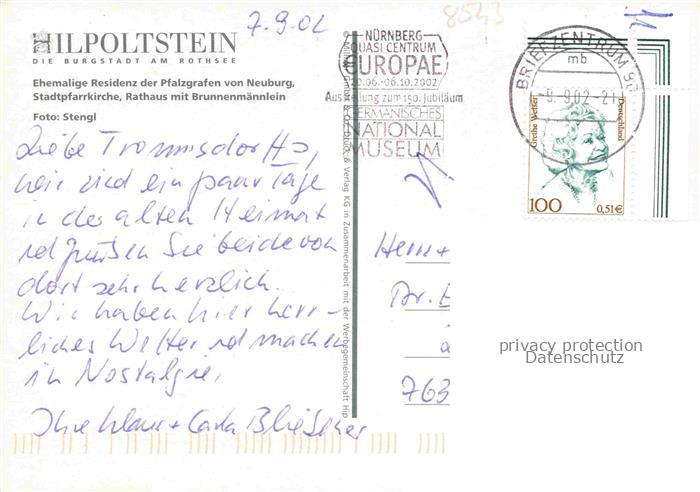 7.9.02
8543
HILPOLTSTEIN
DIE BURGSTADT AM ROTHSEE
Ehemalige Residenz der Pfalzgrafen von Neuburg,
Stadtpfarrkirche, Rathaus mit Brunnenmännlein
Foto: Stengl
Liebe Trommsdorffs,
wir sind ein paar Tage
in der alten Heimat
und grüßen Sie beide von
dort sehr herzlich.
Wir haben hier herr-
liches Wetter und machen
in Nostalgie.
Ihre Klaus + Carla
NÜRNBERG
QUASI CENTRUM
EUROPAE
20.06.-06.10.2002
Ausstellung zum 150. Jubiläum
GERMANISCHES
NATIONAL
MUSEUM
& Verlag KG in Zusammenarbeit mit der Werbegemeinschaft Hip
BRIEFZENTRUM 90
mb
-9.9.02-21
Grethe Weiser
Deutschland
100
0,51€
Herrn +
Dr.
763
privacy protection
Datenschutz